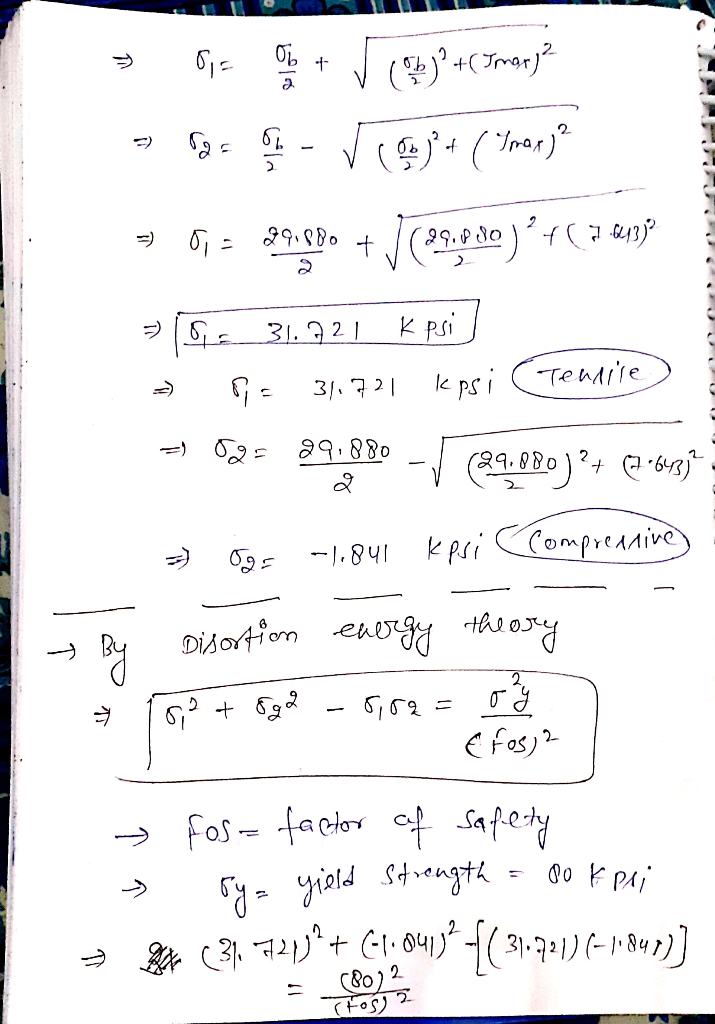 ⇒ σ₁ = σb/2 + √((σb/2)² + (τmax)²)
⇒ σ₂ = σb/2 - √((σb/2)² + (τmax)²)
⇒ σ₁ = 29.880/2 + √((29.880/2)² + (7.643)²)
⇒ σ₁ = 31.721 K psi
⇒ σ₁ = 31.721 kpsi Tensile
⇒ σ₂ = 29.880/2 - √((29.880/2)² + (7.643)²)
⇒ σ₂ = -1.841 kpsi Compressive
→ By Disortion energy theory
⇒ σ₁² + σ₂² - σ₁σ₂ = σ²y/(FOS)²
→ FOS = factor of safety
→ σy = yield strength = 80 kpsi
⇒ (31.721)² + (-1.841)² - [(31.721)(-1.841)]
= (80)²/(FOS)²